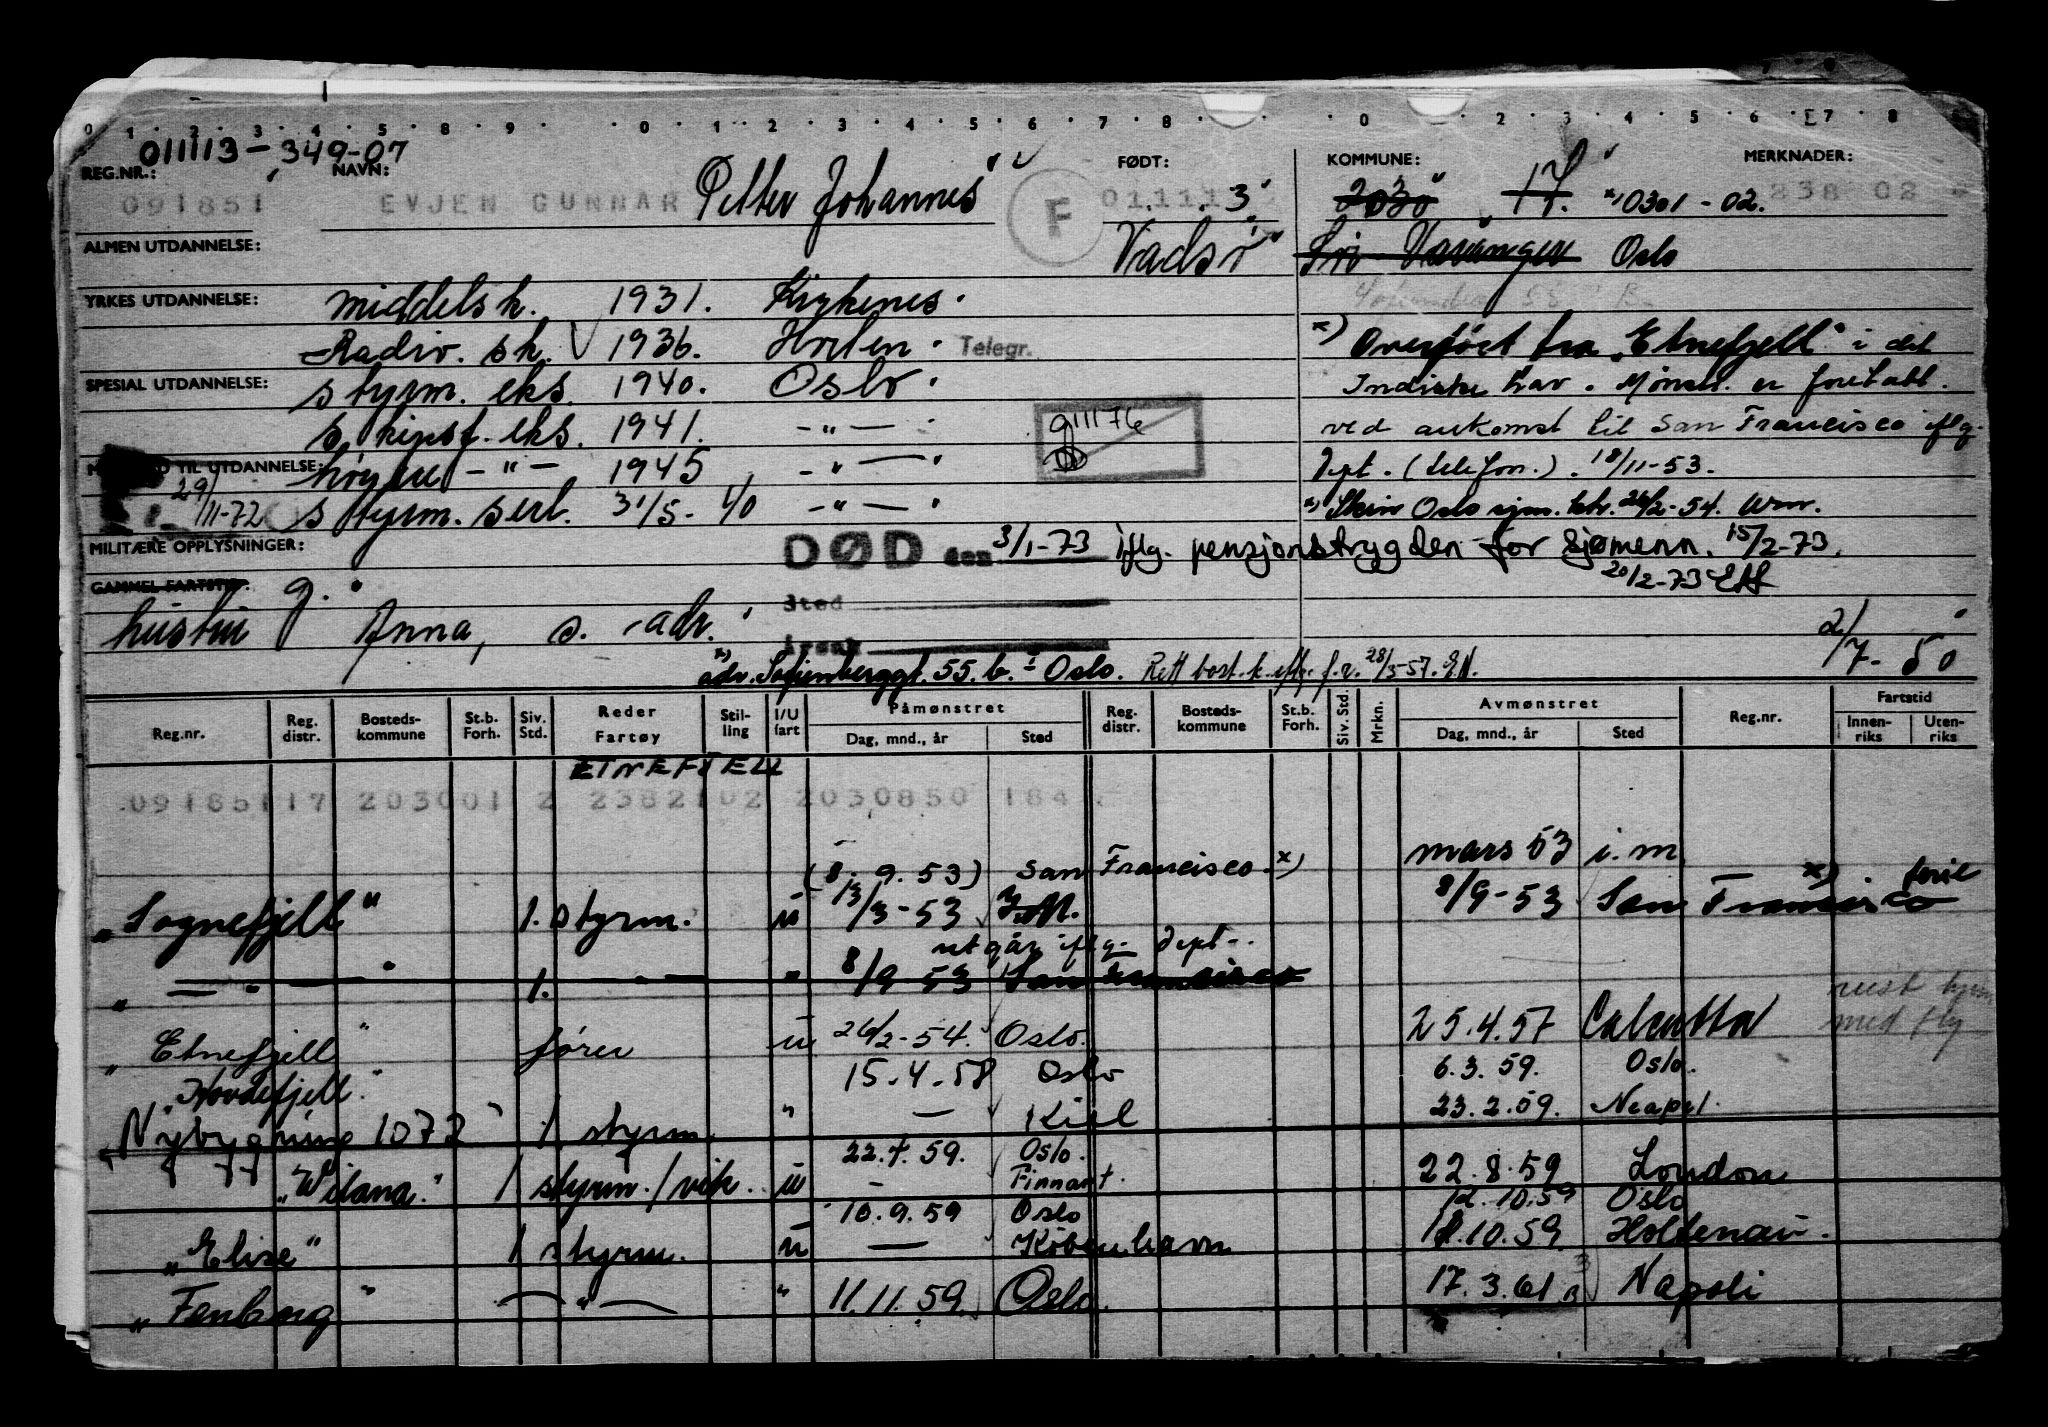 011113-349-07
REG.NR.: NAVN: FØDT: KOMMUNE: MERKNADER:
091851 EVJEN GUNNAR Petter Johannes F 011113 2030 17. x) 0301-02. 238 02
ALMEN UTDANNELSE: Vadsø Sør Varanger Oslo
YRKES UTDANNELSE: middelsk. 1931. Kirkenes.
Radio. sk. 1936. Horten. Telegr. x) Overført fra "Etnefjell" i det
SPESIAL UTDANNELSE: styrm. eks. 1940. Oslo. Indiske hav. Mønstr. er foretatt
skipsf. eks. 1941. -"- 9/11 76 ved ankomst til San Francisco iflg.
TIL UTDANNELSE: høyere -"- 1945 -"- Dept. (telefon.). 18/11-53.
29/11-72 styrm. sert. 31/5-40 -"- x) Skriv Oslo sjm. ktr. 26/2-54.
MILITÆRE OPPLYSNINGER: DØD den 3/1-73 iflg. pensjonstrygden for sjømenn. 15/2-73.
GAMMEL FARTSTID: g. 20/2-73
Sted
hustru Anna, s. adr. Årsak 2/7-50
x) adr. Sofienberggt. 55. b. I Oslo. Rett bost. k. iflg. f.r. 28/3-57.
Reg.nr. Reg. distr. Bosteds- kommune St.b. Forh. Siv. Std. Reder Fartøy Stil- ling I/U fart Påmønstret Dag, mnd., år Sted Reg. distr. Bosteds- kommune St.b. Forh. Siv. Std. Mrkn. Avmønstret Dag, mnd., år Sted Reg.nr. Fartstid Innen- riks Uten- riks
ETNEFJELL
09185117 203001 2 2382102 2030850 184
mars 53 i.m
(8. 9. 53) San Francisco x)
"Sognefjell" 1. styrm. u 13/3-53 I.M. 8/9-53 San Francisco x)
utgår iflg. Dept.
" — " — " 1. — " — " 8/9-53 San Francisco
"Etnefjell" fører u 26/2-54. Oslo. 25.4.57 Calcutta
"Hovdefjell" 15.4.58 Oslo 6.3.59. Oslo.
"Nybygning 1072" 1 styrm. " — Kiel 23.2.59. Neapel.
22.4.59. Oslo.
"Wilana." 1 styrm./vik. u — Finnart. 22.8.59 London
10.9.59 Oslo 12.10.59 Oslo
"Elise" 1 styrm. u — København 12.10.59. Holtenau.
"Fenberg" — " — " 11.11.59. Oslo. 17.3.61 Napoli